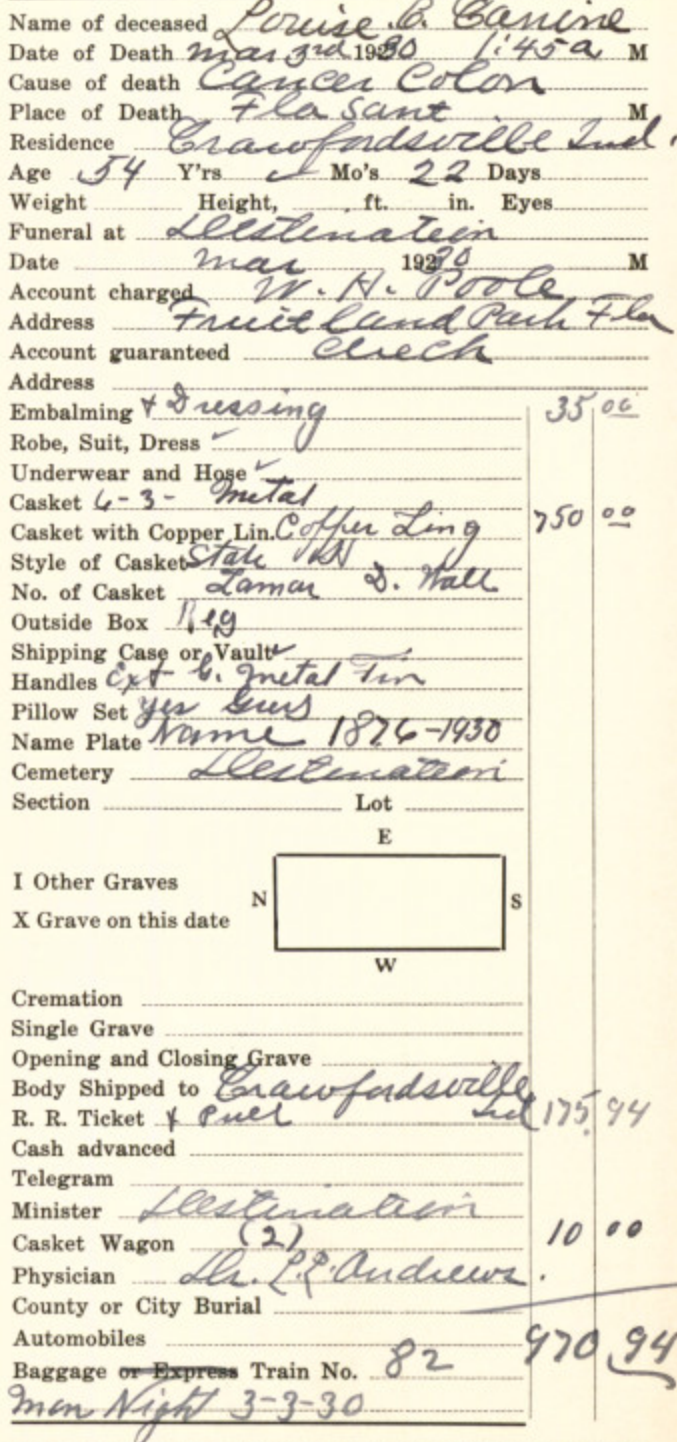 Name of deceased Louise C. Canine
Date of Death Mar 3rd 1930 1:45 a M
Cause of death Cancer Colon
Place of Death Fla Sant M
Residence Crawfordsville Ind.
Age 54 Y'rs ✓ Mo's 22 Days
Weight Height, ft. in. Eyes
Funeral at Destination
Date Mar 1930 M
Account charged W. H. Poole
Address Fruitland Park Fla
Account guaranteed Check
Address
Embalming + Dressing 35 00
Robe, Suit, Dress ✓
Underwear and Hose ✓
Casket 6-3- Metal
Casket with Copper Lin. Copper Ling 750 00
Style of Casket State
No. of Casket Lamar D. Wall
Outside Box Reg
Shipping Case or Vault ✓
Handles Ext C. Metal Tin
Pillow Set yes
Name Plate Name 1876-1930
Cemetery Destination
Section Lot
E
I Other Graves N S
X Grave on this date
W
Cremation
Single Grave
Opening and Closing Grave
Body Shipped to Crawfordsville
R. R. Ticket + Pull Ind 175.94
Cash advanced
Telegram
Minister Destination
Casket Wagon (2) 10 00
Physician Dr. L. L. Andrews.
County or City Burial
Automobiles 970 94
Baggage or Express Train No. 82
Mon Night 3-3-30